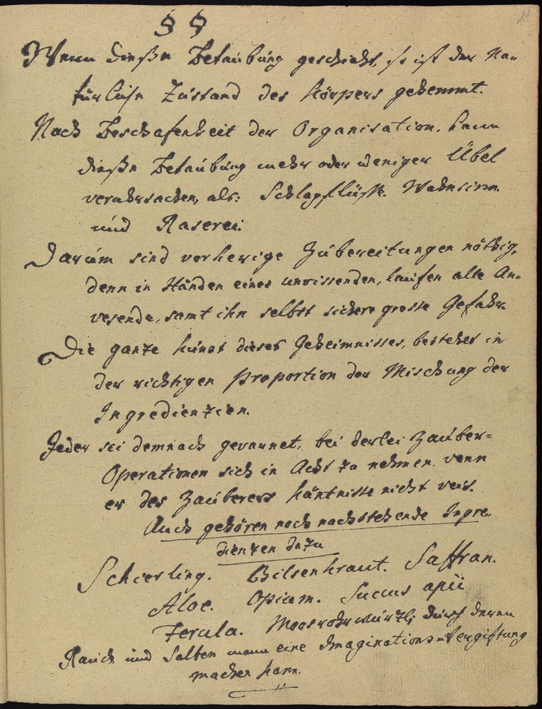 11
§ §
Wenn dieße Betaübung geschieht, so ist der Na-
türliche Zustand des Körpers gehemmt.
Nach Beschafenheit der Organisation, kann
dieße Betaübung mehr oder weniger Übel
veruhrsachen, als: Schlagflüsse. Wahnsinn
und Raserei
Darum sind vorherige Zubereitungen nöthig,
denn in Händen eines unwissenden, laufen alle An-
wesende, samt ihn selbst sichere grosse Gefahr
Die ganze Kunst dieses Geheimnisses, bestehet in
der richtigen Proportion der Mischung der
Ingredienzien.
Jeder sei demnach gewarnet, bei derlei Zauber-
Operationen sich in Acht zu nehmen, wenn
er des Zauberers Käntnisse nicht weis.
Auch gehören noch nachstehende Ingre-
dienzen dazu
Schierling. Bilsenkraut. Saffran.
Aloe. Opium. Succus apii
Ferula. durch deren
Rauch und Salben mann eine Imaginations-Vergiftung
machen kann.